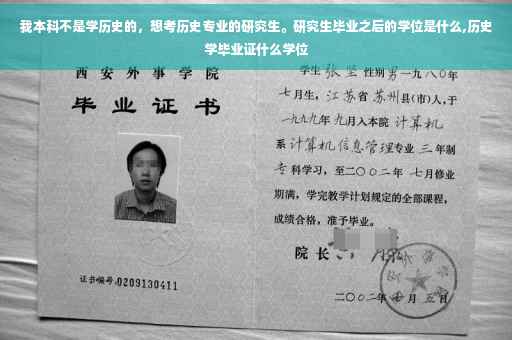 我本科不是学历史的，想考历史专业的研究生。研究生毕业之后的学位是什么,历史
学毕业证什么学位
西安外事学院
毕业证书
证书编号:0209130411
学生张坚性别男一九八〇年
七月生，江苏省苏州县(市)人,于
一九九九年九月入本院计算机
系计算机信息管理专业三年制
专科学习，至二〇〇二年七月修业
期满，学完教学计划规定的全部课程，
成绩合格，准予毕业。
院长
二〇〇二年七月五日